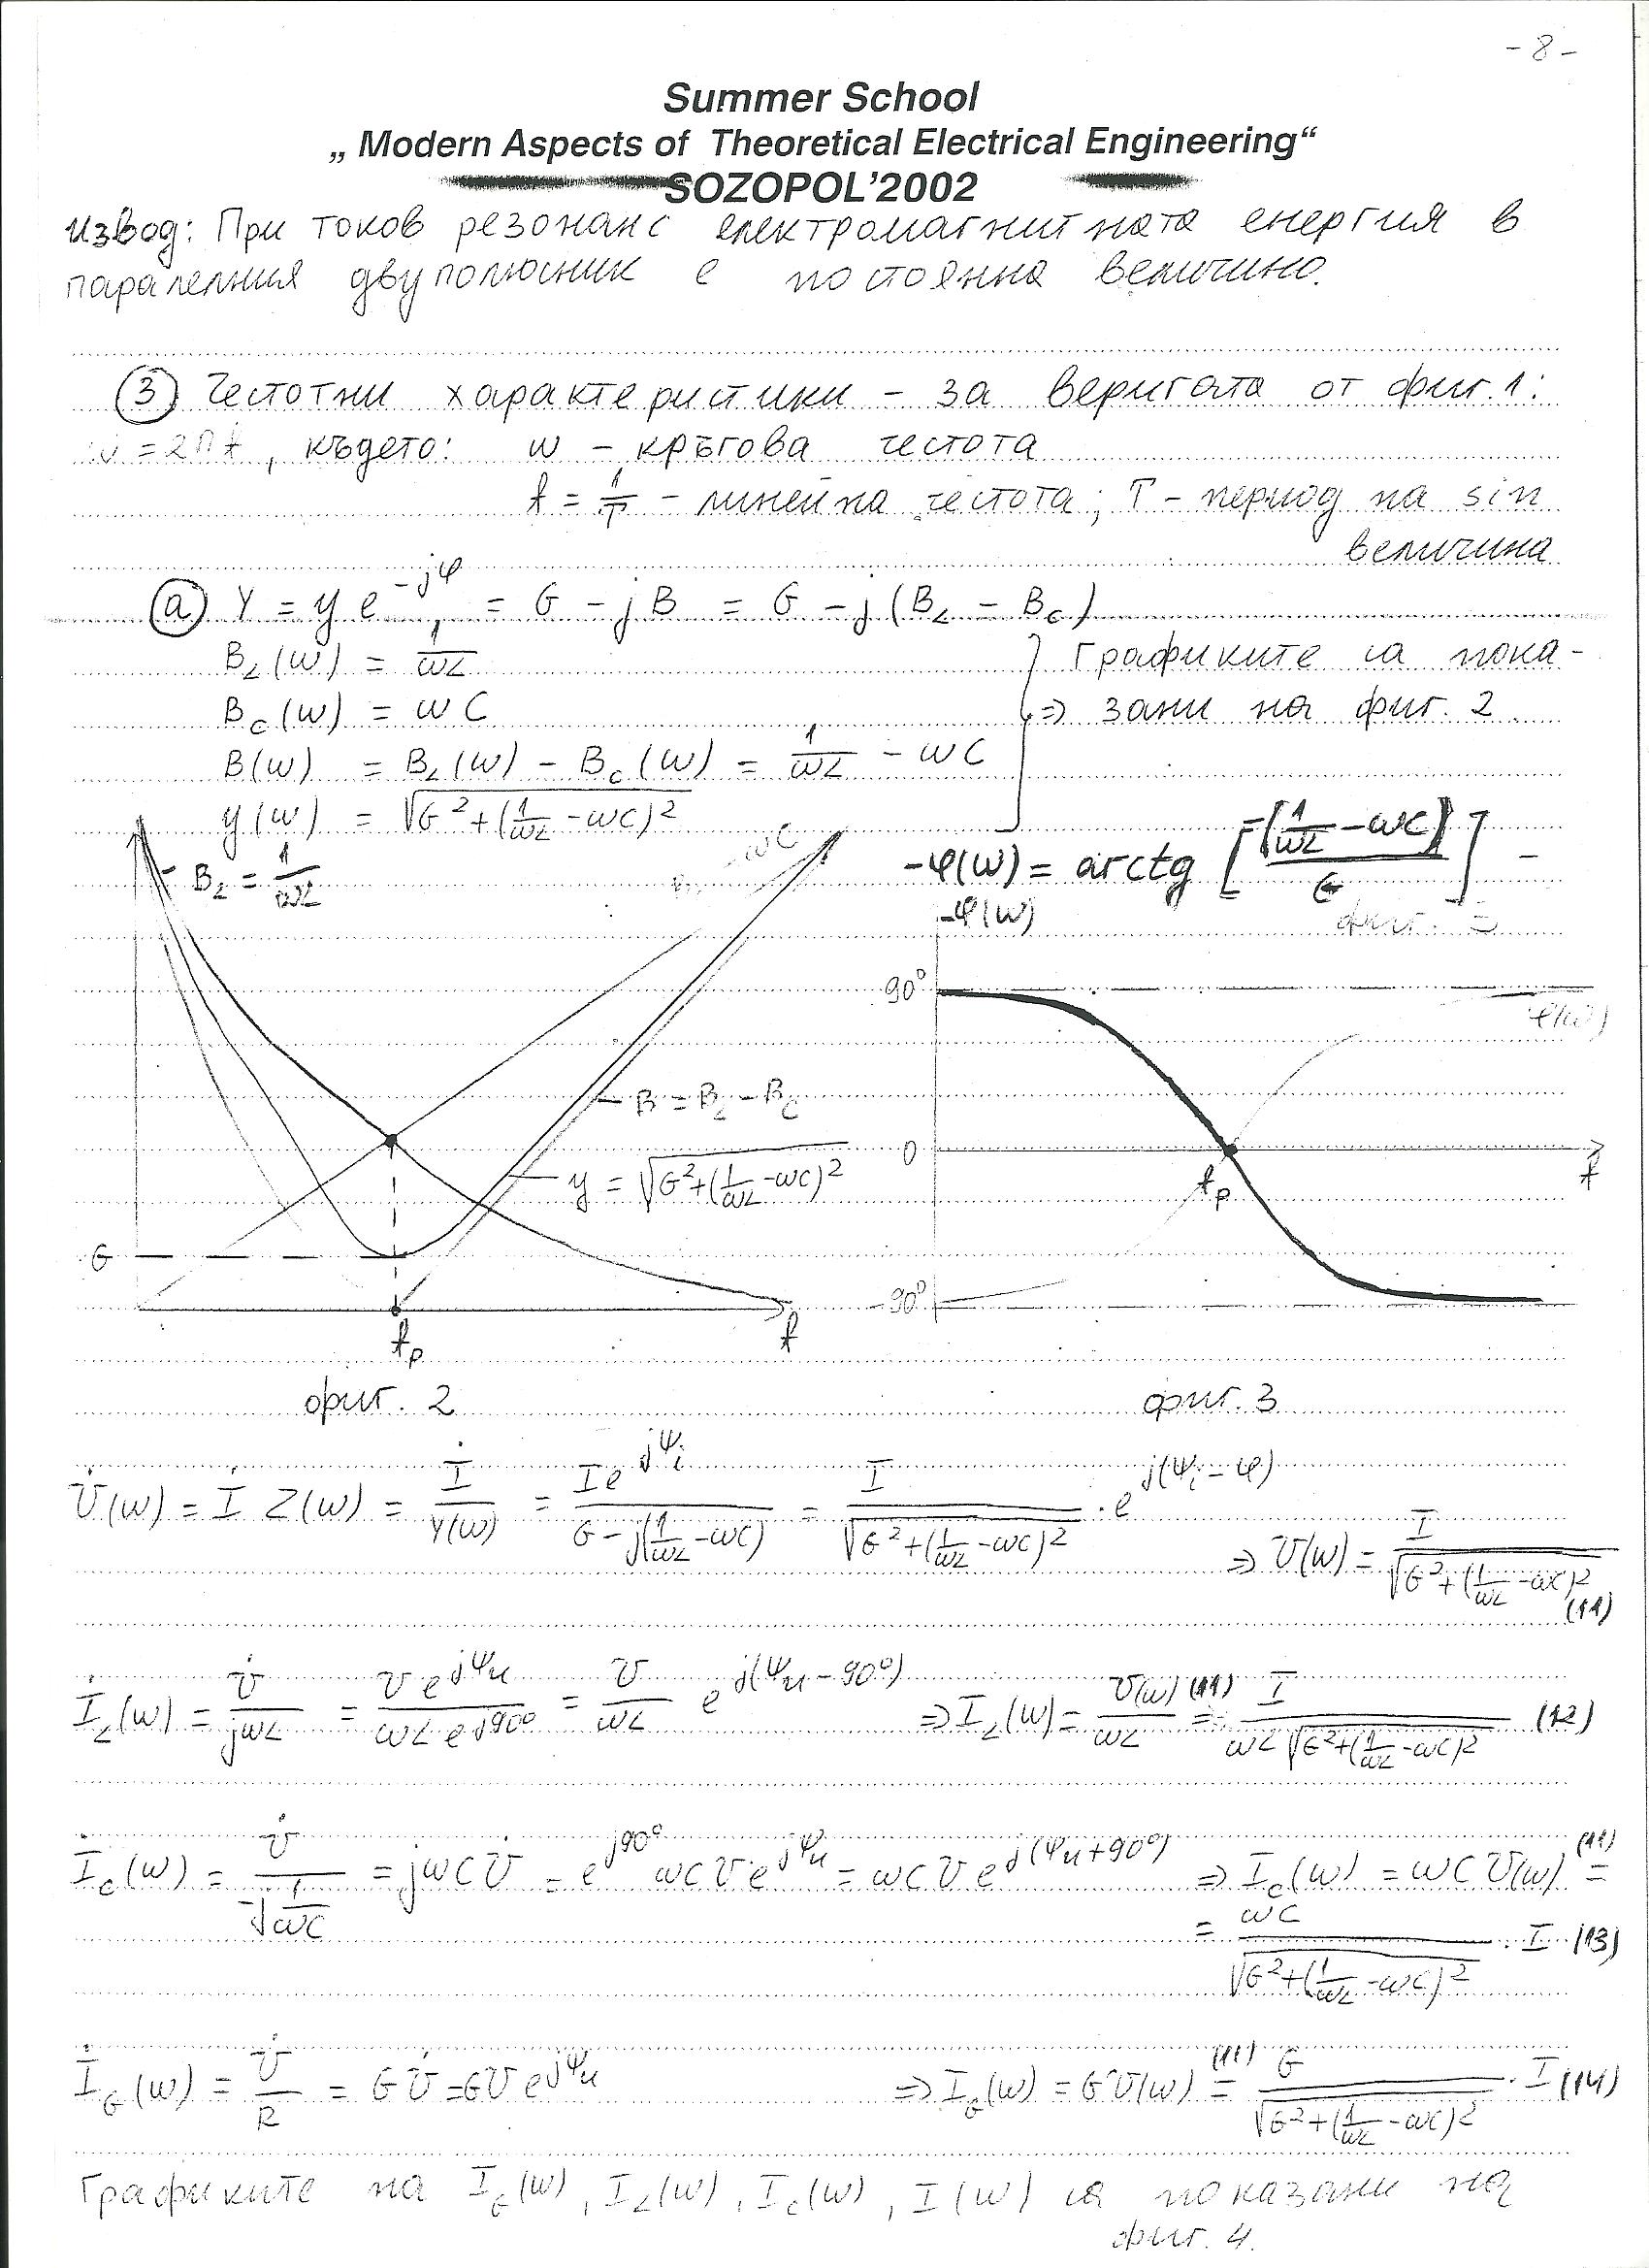 - 8 -
Summer School
„ Modern Aspects of Theoretical Electrical Engineering“
SOZOPOL’2002
Извод: При токов резонанс електромагнитната енергия в
паралелния двуполюсник е постоянна величина.
③ Честотни характеристики - за веригата от фиг.1:
ω = 2πf, където: ω - кръгова честота
f = 1/T - линейна честота; T - период на sin
величина
ⓐ Y = y e^{-jφ} = G - jB = G - j(B_L - B_C)
B_L(ω) = 1/ωL
B_C(ω) = ωC
B(ω) = B_L(ω) - B_C(ω) = 1/ωL - ωC
y(ω) = √(G² + (1/ωL - ωC)²)
} Графиките са пока-
⇒ зани на фиг. 2
-φ(ω) = arctg [-(1/ωL - ωC)/G] -
фиг. 3
B_L = 1/ωL
ωC
B = B_L - B_C
y = √(G² + (1/ωL - ωC)²)
G
f_p
f
фиг. 2
-φ(ω)
90°
φ(ω)
0
f_p
f
-90°
фиг. 3
U̇(ω) = İ Z(ω) = İ/Y(ω) = I e^{jψ_i}/(G - j(1/ωL - ωC)) = I/√(G² + (1/ωL - ωC)²) · e^{j(ψ_i - φ)}
⇒ U(ω) = I/√(G² + (1/ωL - ωC)²) (11)
İ_L(ω) = U̇/jωL = U e^{jψ_u}/(ωL e^{j90°}) = U/ωL e^{j(ψ_u - 90°)} ⇒ I_L(ω) = U(ω)/ωL =(11) I/(ωL √(G² + (1/ωL - ωC)²)) (12)
İ_C(ω) = U̇/(-j 1/ωC) = jωCU̇ = e^{j90°} ωCU e^{jψ_u} = ωCU e^{j(ψ_u + 90°)} ⇒ I_C(ω) = ωCU(ω) =(11)
= ωC/√(G² + (1/ωL - ωC)²) · I (13)
İ_G(ω) = U̇/R = GU̇ = GU e^{jψ_u} ⇒ I_G(ω) = GU(ω) =(11) G/√(G² + (1/ωL - ωC)²) · I (14)
Графиките на I_G(ω), I_L(ω), I_C(ω), I(ω) са показани на
фиг. 4.